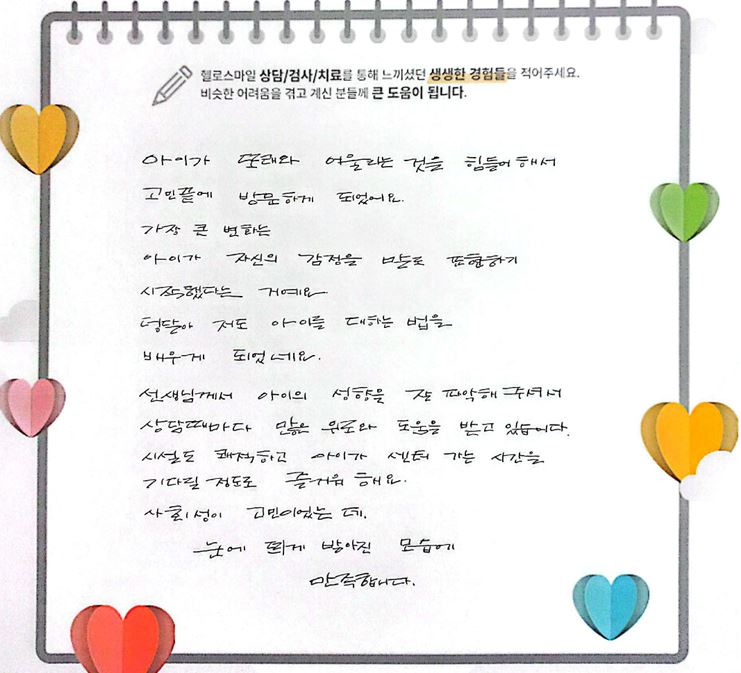 헬로스마일 상담/검사/치료를 통해 느끼셨던 생생한 경험들을 적어주세요.
비슷한 어려움을 겪고 계신 분들께 큰 도움이 됩니다.
아이가 또래와 어울리는 것을 힘들어 해서
고민끝에 방문하게 되었어요.
가장 큰 변화는
아이가 자신의 감정을 말로 표현하기
시작했다는 거예요
덩달아 저도 아이를 대하는 법을
배우게 되었네요.
선생님께서 아이의 성향을 잘 파악해 주셔서
상담때마다 많은 위로와 도움을 받고 있습니다.
시설도 쾌적하고 아이가 센터 가는 시간을
기다릴 정도로 즐거워 해요.
사회성이 고민이었는 데.
눈에 띄게 밝아진 모습에
만족합니다.